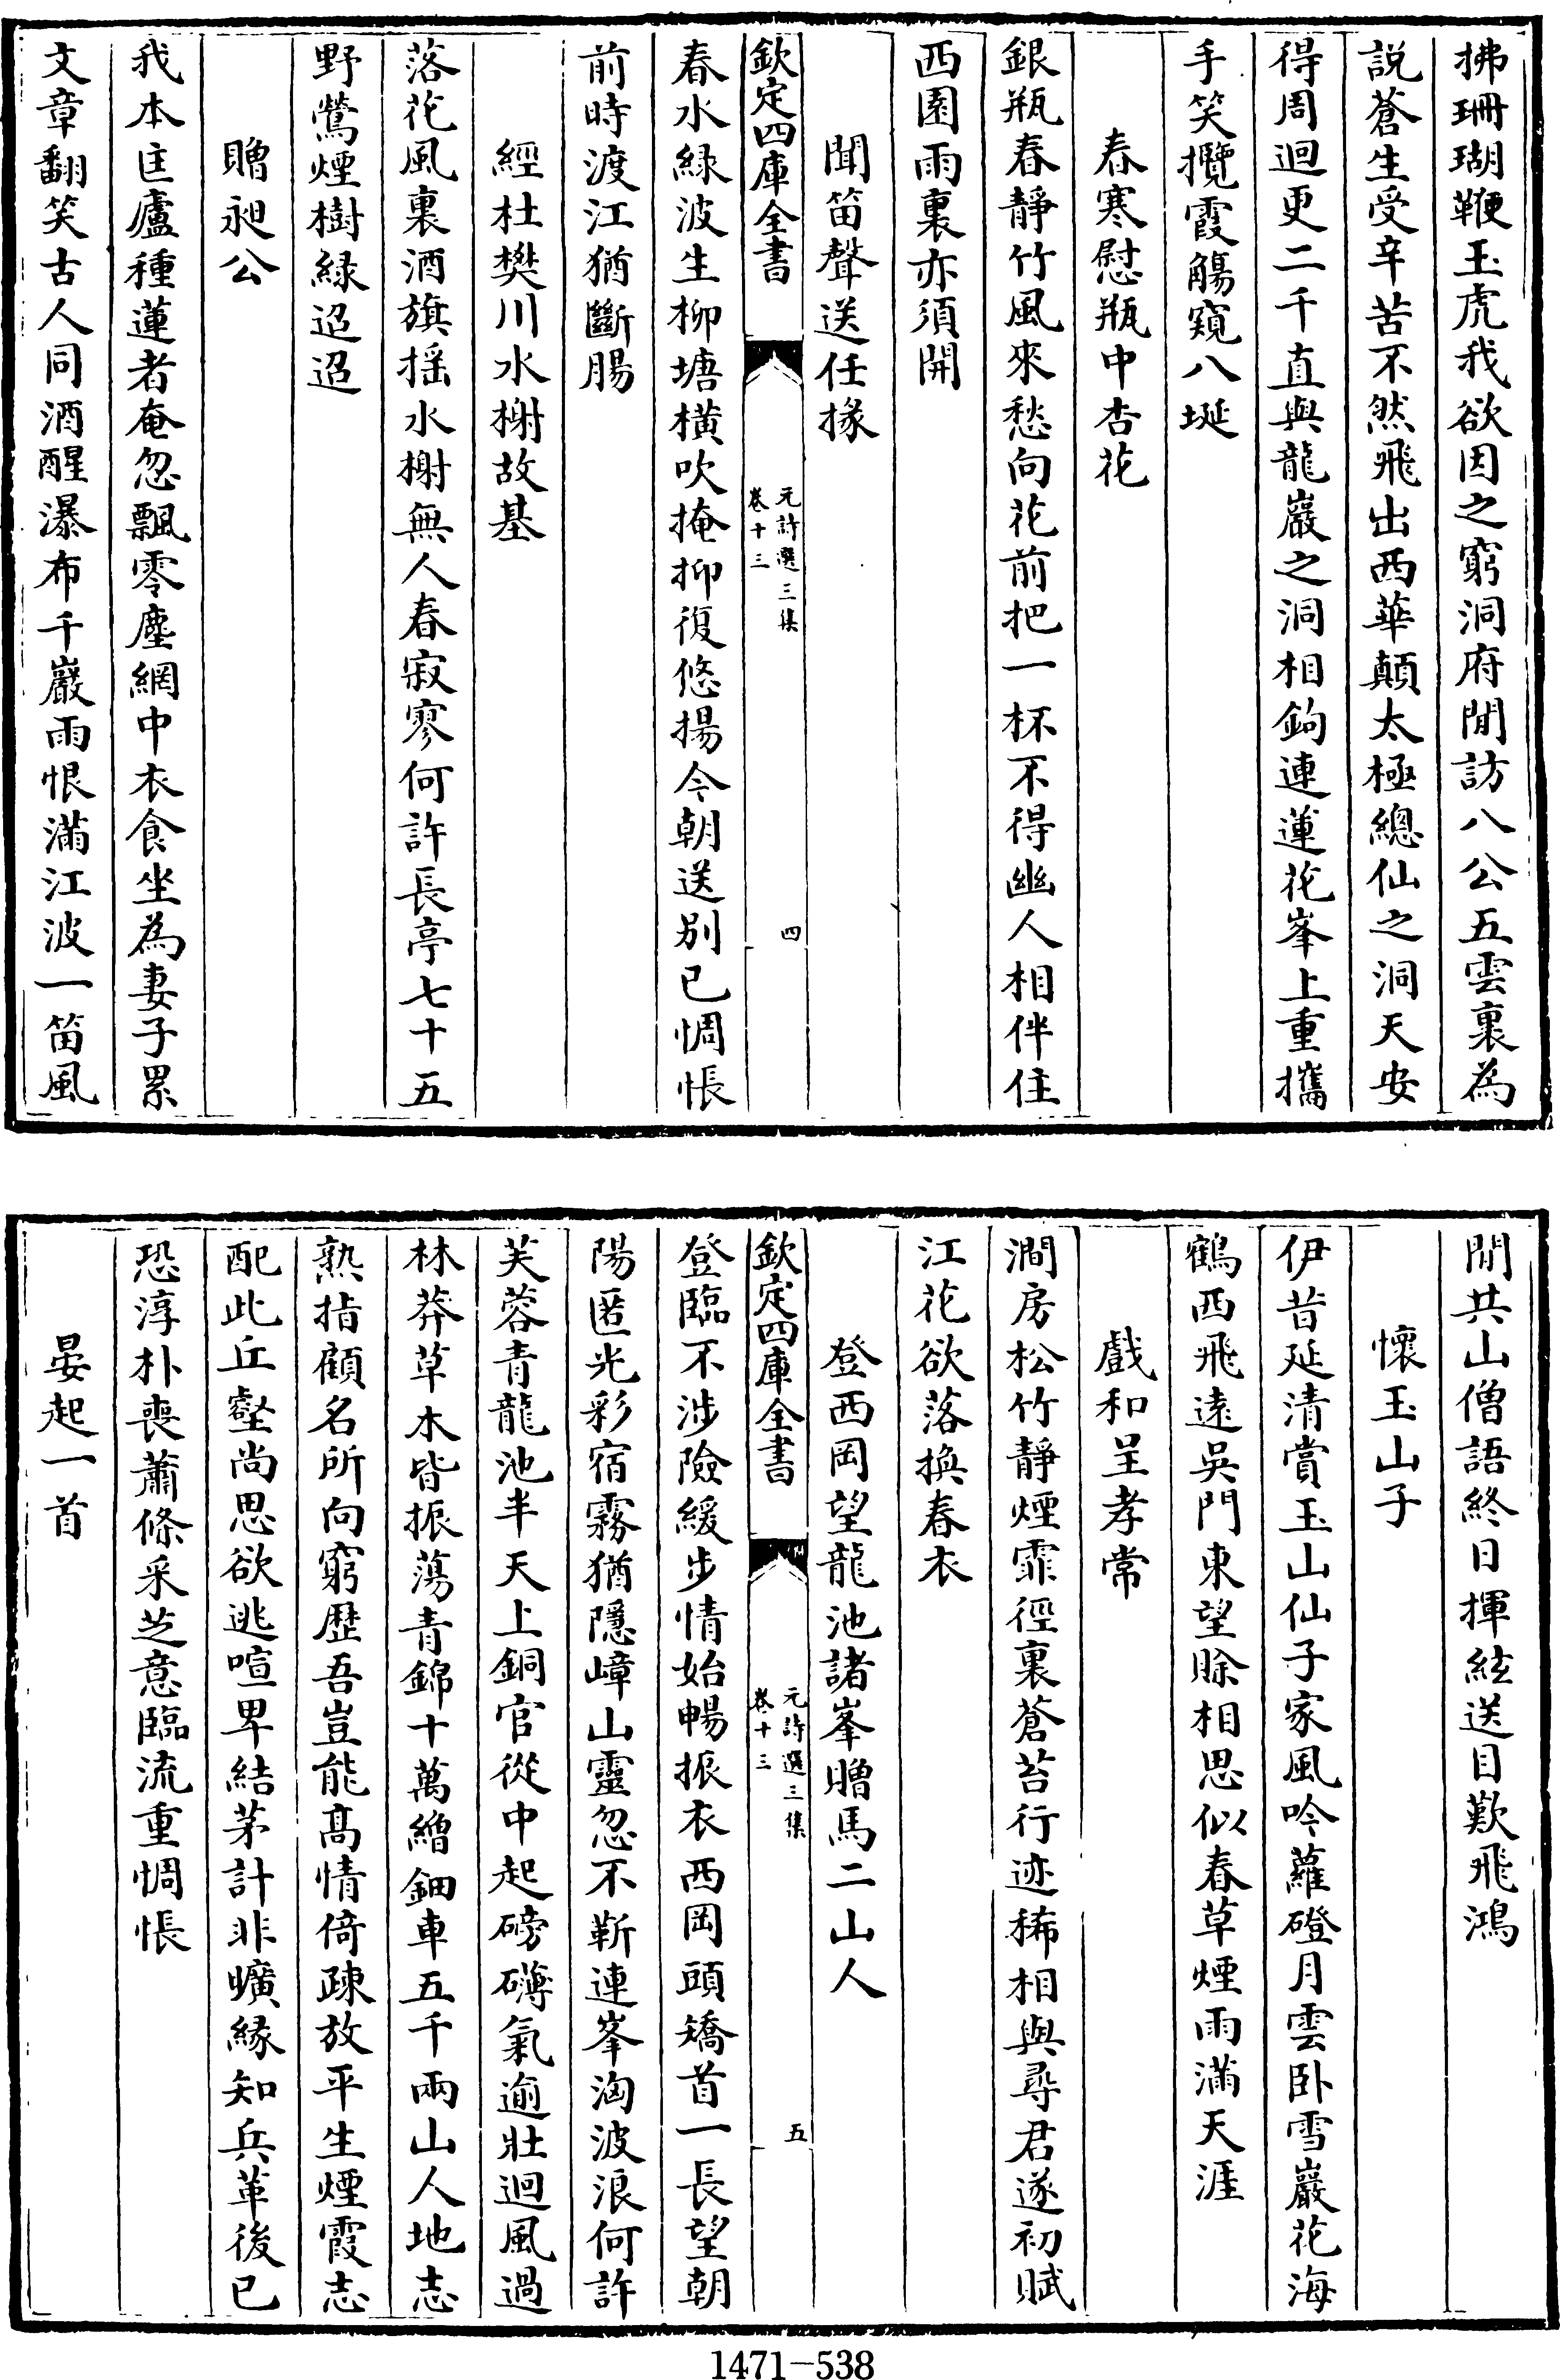 拂珊瑚鞭玉虎我欲因之窮洞府閒訪八公五雲裏為
説蒼生受辛苦不然飛出西華顛太極總仙之洞天安
得周迴更二千直與龍巖之洞相鉤連蓮花峯上重攜
手笑攬霞觴窺八埏
春寒慰瓶中杏花
銀瓶春靜竹風來愁向花前把一杯不得幽人相伴住
西園雨裏亦須開
聞笛聲送任掾
欽定四庫全書
元詩選三集
卷十三
四
春水緑波生柳塘橫吹掩抑復悠揚今朝送别已惆悵
前時渡江猶斷腸
經杜樊川水榭故基
落花風裏酒旗揺水榭無人春寂寥何許長亭七十五
野鶯煙樹緑迢迢
贈昶公
我本匡廬種蓮者奄忽飄零塵網中衣食坐為妻子累
文章翻笑古人同酒醒瀑布千巖雨恨滿江波一笛風
閒共山僧語終日揮絃送目歎飛鴻
懷玉山子
伊昔延清賞玉山仙子家風吟蘿磴月雲卧雪巖花海
鶴西飛遠吳門東望賒相思似春草煙雨滿天涯
戲和呈孝常
澗房松竹靜煙霏徑裏蒼苔行迹稀相與尋君遂初賦
江花欲落換春衣
登西岡望龍池諸峯贈馬二山人
欽定四庫全書
元詩選三集
卷十三
五
登臨不涉險緩步情始暢振衣西岡頭矯首一長望朝
陽匿光彩宿霧猶隱嶂山靈忽不靳連峯洶波浪何許
芙蓉青龍池半天上銅官從中起磅礴氣逾壯迴風過
林莽草木皆振蕩青錦十萬繒鈿車五千兩山人地志
熟指顧名所向窮歴吾豈能髙情倚疎放平生煙霞志
配此丘壑尚思欲逃喧卑結茅計非曠緣知兵革後已
恐淳朴喪蕭條采芝意臨流重惆悵
晏起一首
1471-538